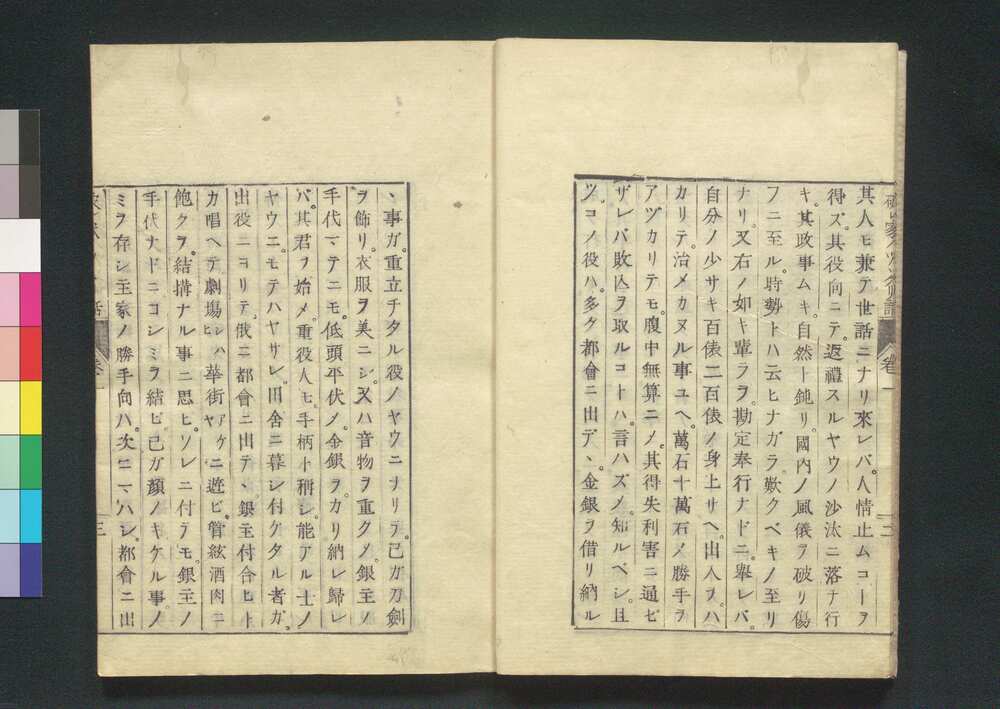 其人モ兼テ世話ニナリ來レバ。人情止ムコトヲ
得ズ。其役向ニテ。返禮スルヤウノ沙汰ニ落チ行
キ。其政事ムキ。自然ト鈍リ。國内ノ風儀ヲ破リ傷
フニ至ル。時勢トハ云ヒナガラ歎クベキノ至リ
ナリ。又右ノ如キ輩ラヲ。勘定奉行ナドニ。舉レバ。
自分ノ少サキ百俵二百俵ノ身上サヘ。出入ヲハ
カリテ。治メカヌル事ユヘ。萬石十萬石ノ勝手ヲ
アヅカリテモ。腹中無算ニメ。其得失利害ニ通ゼ
ザレバ敗亾ヲ取ルコトハ。言ハズメ。知ルベシ。且
ツコノ役ハ。多ク都會ニ出デヽ。金銀ヲ借リ納ル
卷一
二
ヽ事ガ。重立チタル役ノヤウニナリテ。己ガ刀劍
ヲ飾リ。衣服ヲ美ニシ。又ハ音物ヲ重クメ。銀主ノ
手代マテニモ。低頭平伏メ。金銀ヲカリ納レ歸レ
バ。其君ヲ始メ。重役人モ。手柄ト稱シ。能アル士ノ
ヤウニ。モテハヤサレ。田舎ニ暮シ付ケタル者ガ。
出役ニヨリテ。俄ニ都會ニ出テヽ銀主付合ヒト
カ唱ヘテ劇場シバヒ華街アゲヤニ遊ビ。管絃酒肉ニ
飽クヲ。結構ナル事ニ思ヒソレニ付テモ。銀主ノ
手代ナドニコシミヲ結ビ。己ガ顔ノキケル事ノ
ミヲ存シ主家ノ勝手向ハ。次ニマハシ。都會ニ出
三